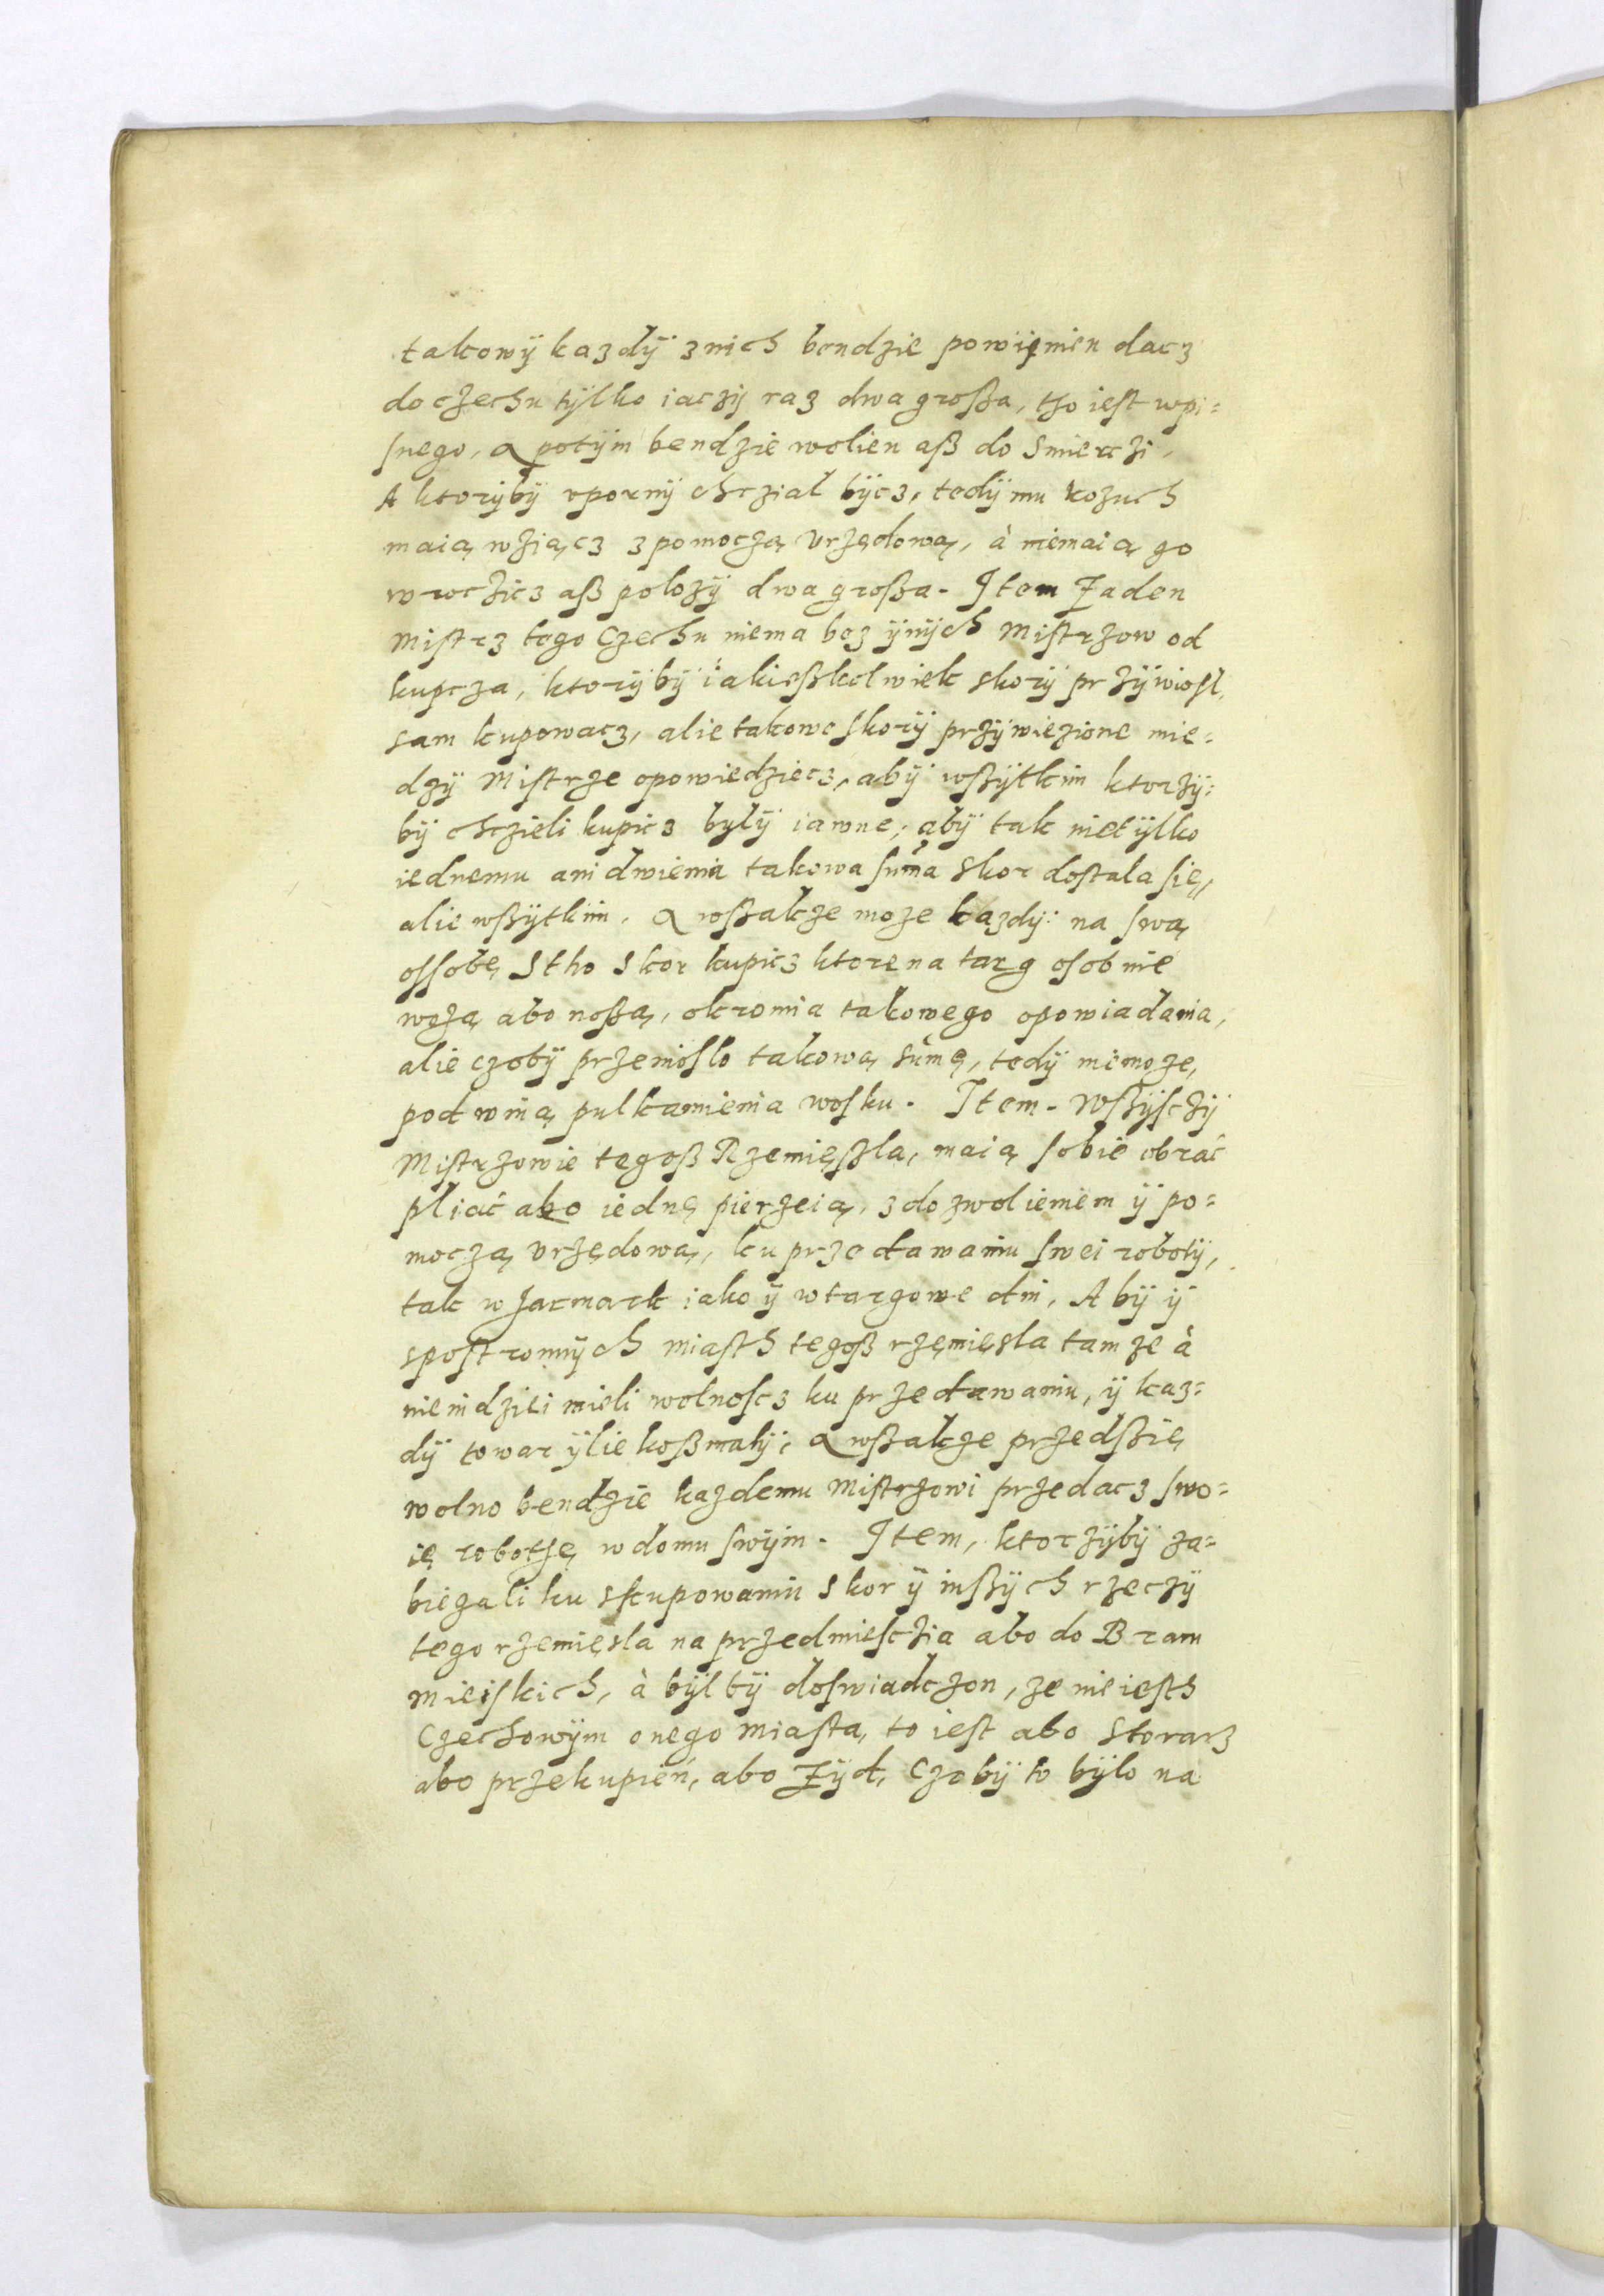 takowÿ kazdÿ znich bendzie powięnien dacz
do czechu tÿlko iaczÿ raz dwa großa, tho iest wpi=
snego, A potÿm bendzie wolien aß do Smierczi.
A ktorÿbÿ vpornÿ chczial bÿcz, tedÿ mu kozuch
maią wziącz z pomoczą Vrzędową, à niemaią go
wroczicz aß polozÿ dwa großa. Item Zaden
Mistrz tego Czechu niema bez ÿnÿch Mistrzow od
kupcza, ktorÿbÿ iakießkolwiek skorÿ przÿwiosl,
sam kupowacz, alie takowe skorÿ przÿwiezione mie=
dzÿ Mistrze opowiedziecz, abÿ wßÿtkim ktorzÿ=
bÿ chczieli kupicz bylÿ iawne, abÿ tak nietÿlko
iednemu ani dwiema takowa suma Skor dostala się,
alie wßÿtkim. A wßakze moze kazdÿ na swą
ossobę Stho Skor kupicz ktore na targ osobnie
wożą abo noßą, okromia takowego opowiadania,
alie czobÿ przeniosło takową sumę, tedÿ niemoze,
pod winą pulkamienia wosku. Item. Wßÿsczÿ
Mistrzowie tegoß Rzemięßla, maią sobie obrać
pliać abo iednę pierzeią, z dozwoliemem ÿ po=
moczą vrzędową, ku przedawaniu swei robotÿ,
tak w Jarmark iako ÿ wtargowe dni, A bÿ ÿ
spostronnÿch miasth tegoß rzemięsla tamze à
nie indziei mieli wolnoscz ku przedawaniu, ÿ kaz=
dÿ towar ÿlie koßmatÿ; A wßakze przedßię
wolno bendzie kazdemu Mistrzowi przedacz swo=
ię robothę w domu swÿm. Item, ktorzÿbÿ za=
biegali ku skupowaniu Skor ÿ inßÿch rzeczÿ
tego rzemięsla na przedmiesczia abo do Bram
Mieiskich, à bÿlbÿ doswiadczon, ze nie iesth
Czechowÿm onego Miasta, to iest abo Storarz
abo przekupień, abo Zÿd, Czobÿ to bÿlo na